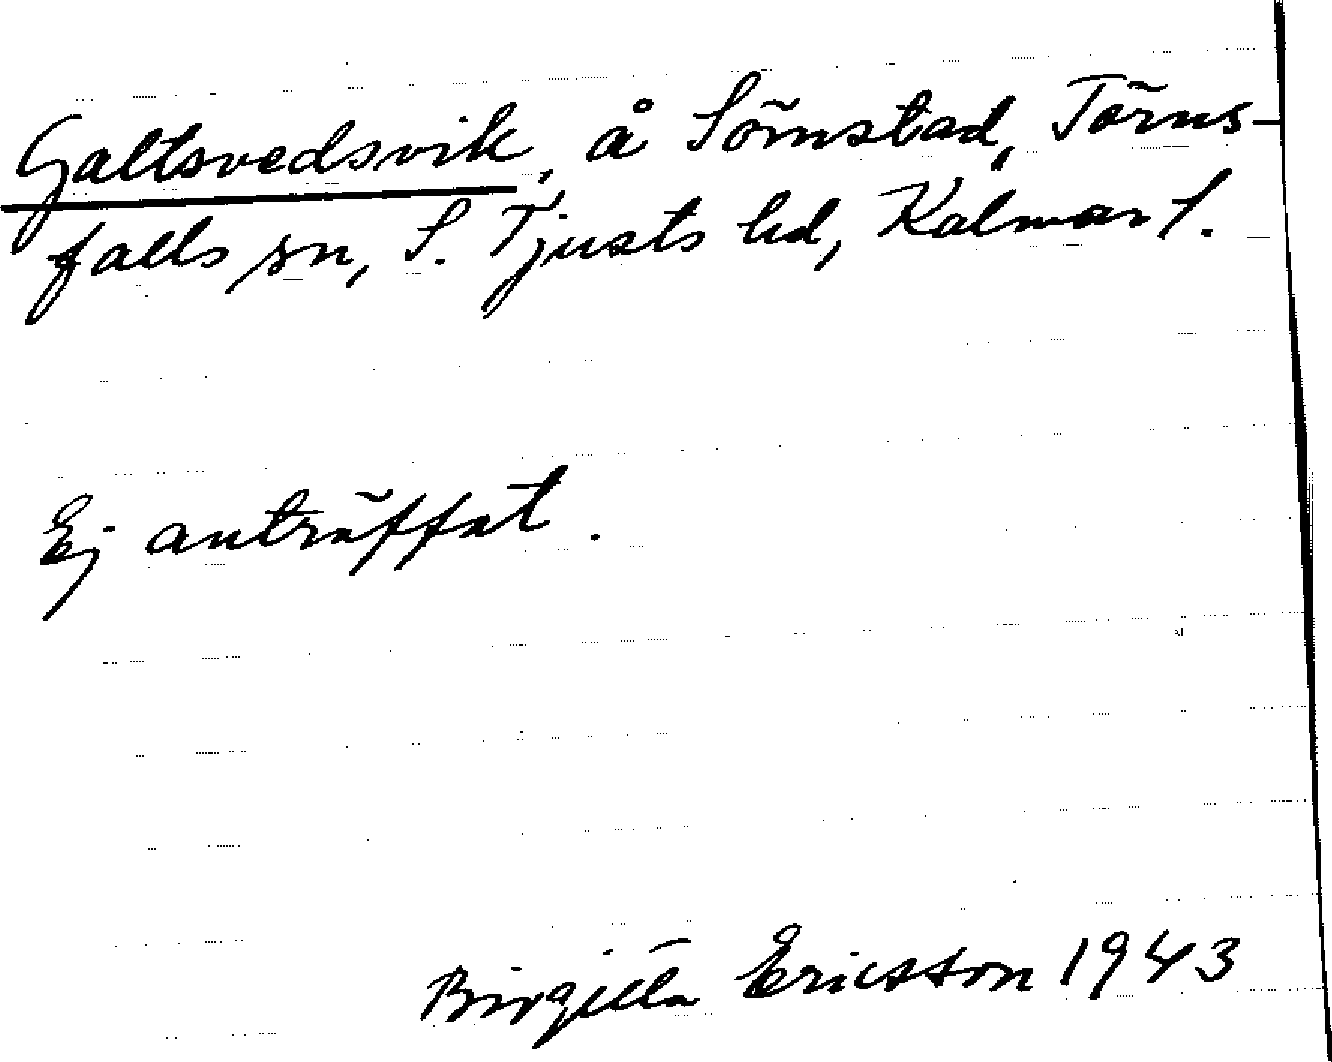 Galtsvedsvik, å Sörnstad, Törns-
falls sn, S. Tjusts hd, Kalmar l.
Ej anträffat.
Birgitta Ericsson 1943